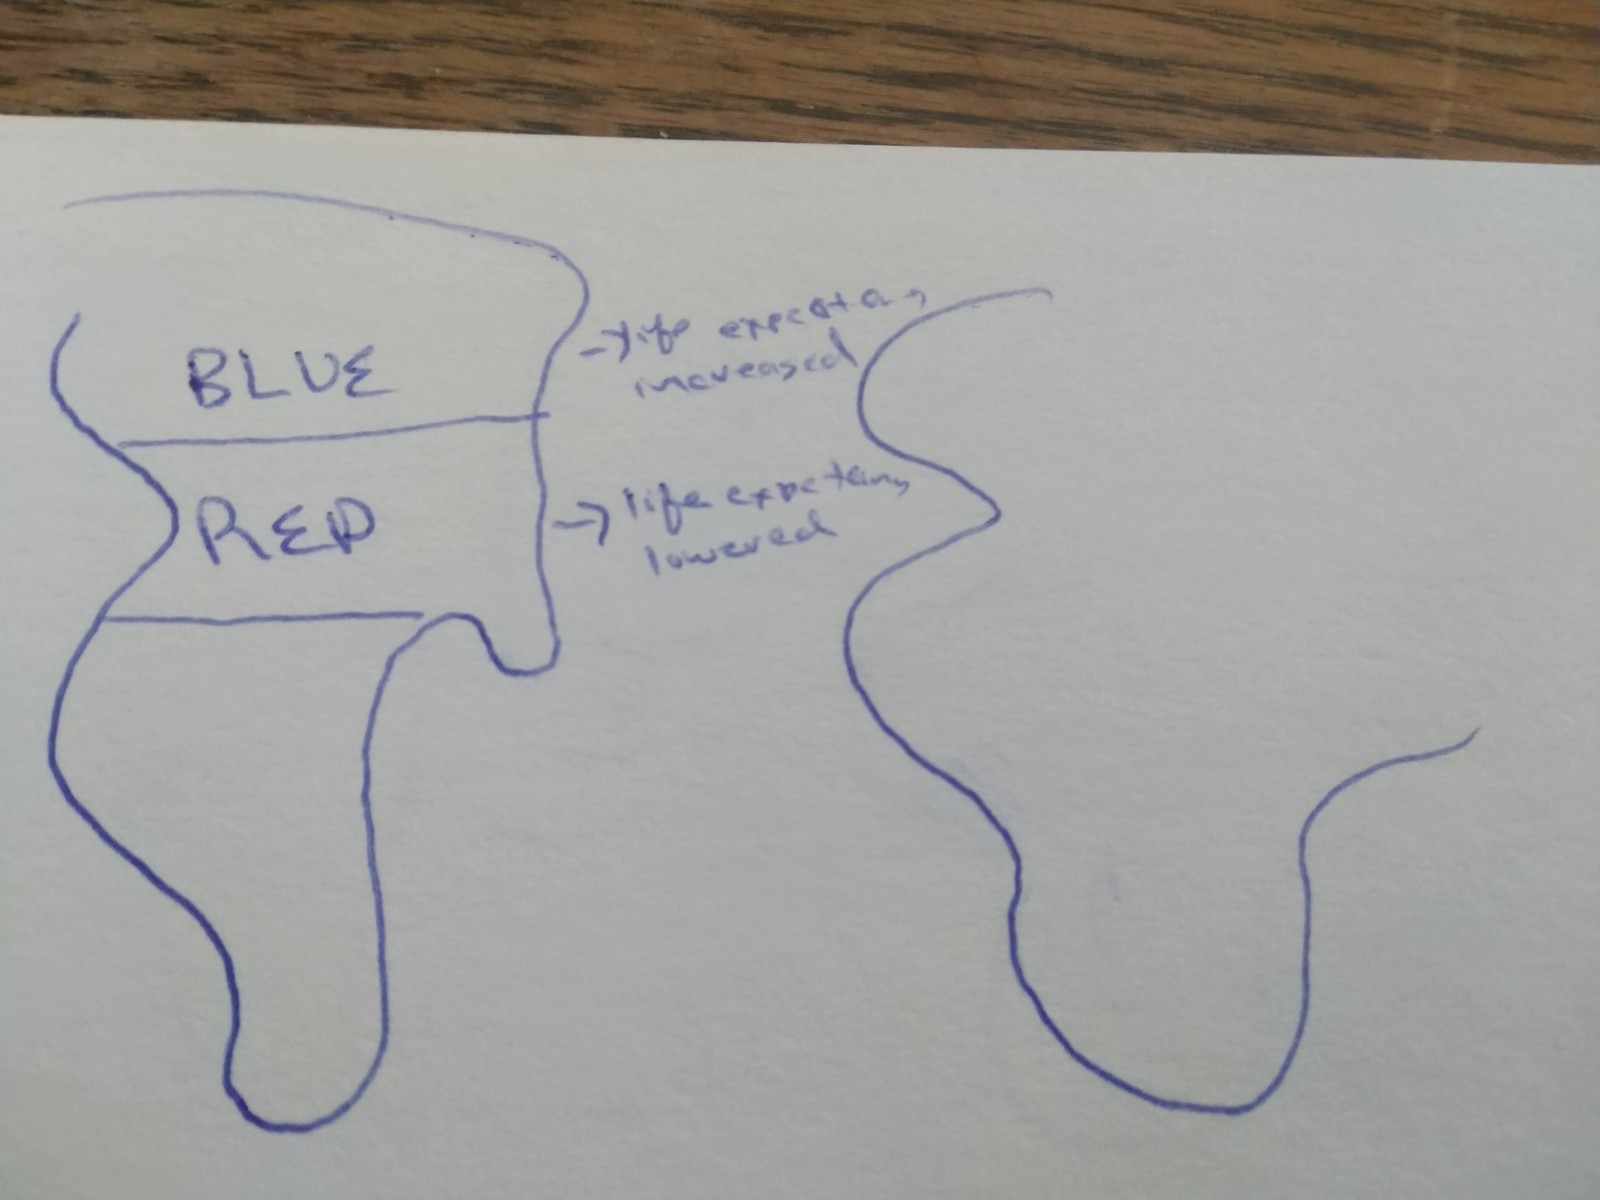 BLUE
life expecta
increased
RED
life expectany
lowered